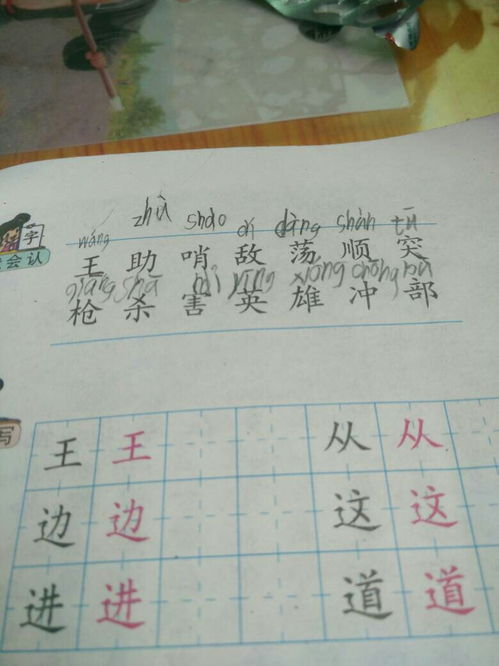 wáng zhù shào dí dàng shùn tū
字
王 助 哨 敌 荡 顺 突
会认
qiāng shā hài yīng xióng chōng bù
枪 杀 害 英 雄 冲 部
写
王 王 从 从
边 边 这 这
进 进 道 道